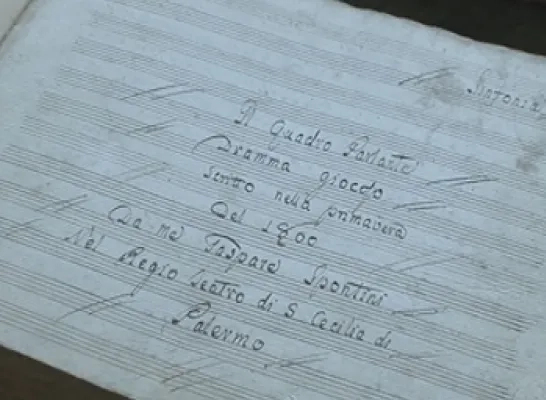 Sinfonia
Il Quadro Parlante
Dramma giocoso
scritto nella primavera
Del 1800
Da me Gaspare Spontini
Nel Regio Teatro di S. Cecilia di
Palermo